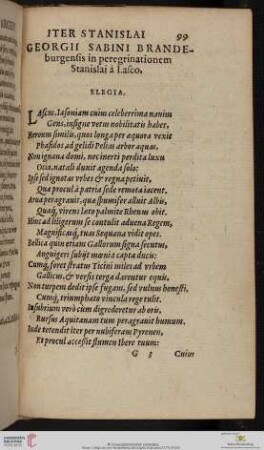 ITER STANISLAI 99
GEORGII SABINI BRANDE-
burgensis in peregrinationem
Stanislai à Lasco.
ELEGIA.
LAsce, Iasoniam cuius celeberrima nauim
Gens, insigne vetus nobilitatis habet,
Heroum similis, quos longa per aequora vexit
Phasidos ad gelidi Pelias arbor aquas.
Non ignaua domi, nec inerti perdita luxu
Ocia, natali duxit agenda solo:
Ipse sed ignotas vrbes & regna petiuit,
Qua procul à patria sede remota iacent.
Arua peragrauit, qua spumifer alluit Albis,
Quaq́, virens lato palmite Rhenus obit.
Hinc ad iligerum se contulit aduena Regem,
Magnificasq́, tuas Sequana vidit opes.
Bellica quin etiam Gallorum signa secutus,
Anguigeri subijt mœnia capta ducis:
Cumq́, foret stratus Ticini miles ad vrbem
Gallicus, & versis terga darentur equis,
Non turpem dedit ipse fugam, sed vulnus honesti,
Cumq́, triumphato vincula rege tulit.
Insubrium verò cùm digrederetur ab oris,
Rursus Aquitanam tum peragrauit humum.
Inde tetendit iter per nubiferam Pyrenen,
Et procul accessit flumen Ibere tuum:
G 3 Cuius